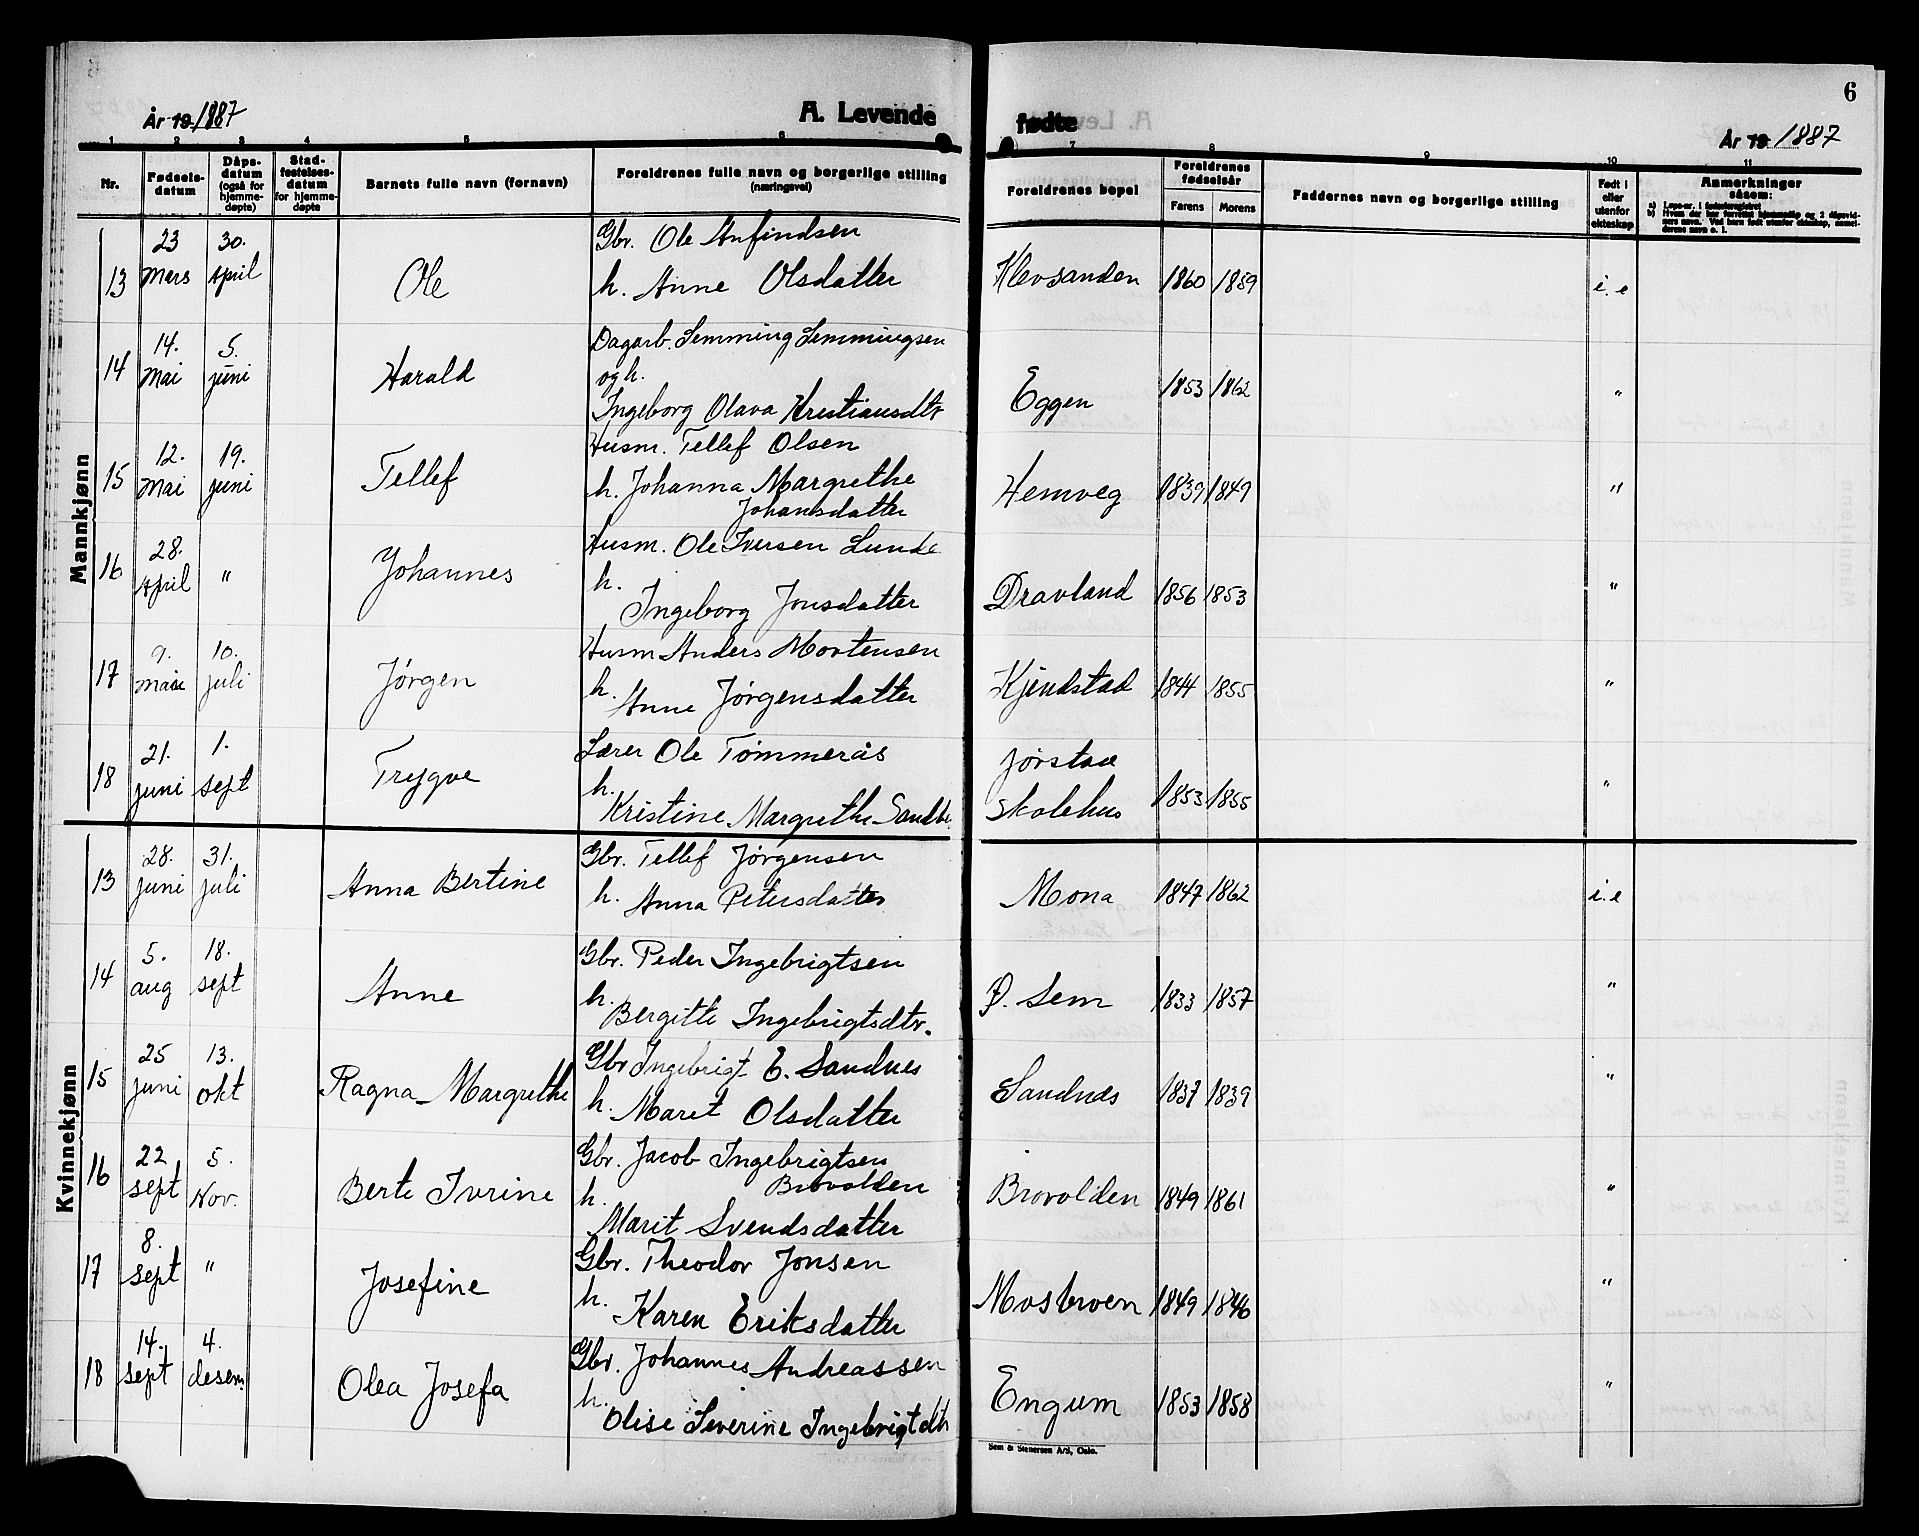 6
År 19 1887
A. Levende
fødte
År 19 1887
1 2 3 4 5 6 7 8 9 10 11
Nr.
Fødsels-
datum
Dåps-
datum
(også for
hjemme-
døpte)
Stad-
festelses-
datum
for hjemme-
døpte
Barnets fulle navn (fornavn)
Foreldrenes fulle navn og borgerlige stilling
(næringsvei)
Foreldrenes bopel
Foreldrenes
fødselsår
Farens Morens
Faddernes navn og borgerlige stilling
Født i
eller
utenfor
ekteskap
Anmerkninger
såsom:
a) Løpe-nr. i fødselsregistret
Mannkjønn
13 23 Mars 30. April Ole Gbr. Ole Anfindsen
h. Anne Olsdatter Klevsanden 1860 1859 i. e
14 14. Mai 5. juni Harald Dagarb. Lemming Lemmingsen
og h.
Ingeborg Olava Kristiansdtr Eggen 1853 1862 "
15 12. Mai 19. juni Tellef Husm. Tellef Olsen
h. Johanna Margrethe
Johansdatter Hemveg 1839 1849 "
16 28. April " Johannes Husm. Ole Iversen Lunde
h.
Ingeborg Jonsdatter Dravland 1856 1853 "
17 9. Mai 10. juli Jørgen Husm Anders Mortensen
h. Anne Jørgensdatter Kjendstad 1844 1855 "
18 21. juni 1. sept Trygve Lærer Ole Tømmerås
h.
Kristine Margrethe Jørstad
skolehus 1853 1855 "
Kvinnekjønn
13 28. juni 31. juli Anna Bertine Gbr. Tellef Jørgensen
h. Anna Petersdatter Mona 1847 1862 i. e
14 5. aug 18. sept Anne Gbr. Peder Ingebrigtsen
h.
Bergitte Ingebrigtsdtr. Ø. Sem 1833 1857 "
15 25 juni 13. okt Ragna Margrethe Gbr Ingebrigt E. Sandnes
h. Maret Olsdatter Sandnes 1837 1839 "
16 22 sept 5. Nov. Berte Ivrine Gbr. Jacob Ingebrigtsen
Brovolden
h.
Marit Svendsdatter Brovolden 1849 1861 "
17 8. sept " Josefine Gbr. Theodor Jonsen
h.
Karen Eriksdatter Mosbroen 1849 1846 "
18 14. sept 4. desem. Olea Josefa Gbr. Johannes Andreassen
h.
Olise Severine Ingebrigtdtr Engum 1853 1858 "
Sem & Stenersen A/S, Oslo.